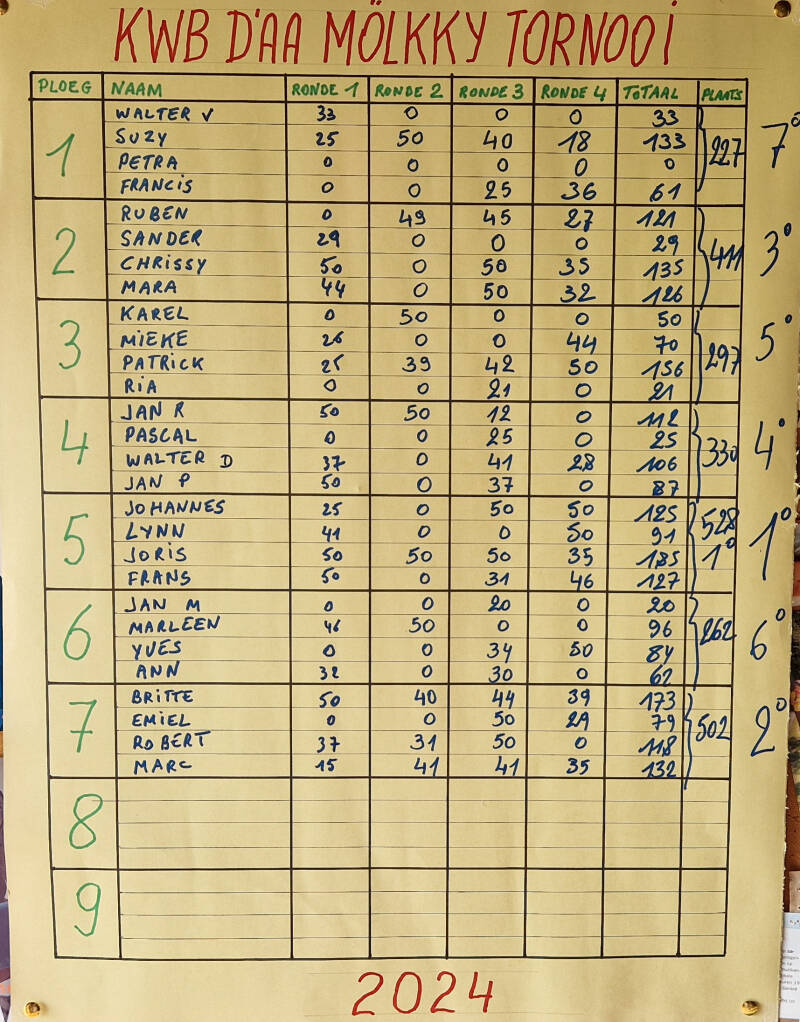 KWB D'AA MÖLKKY TORNOOI
PLOEG NAAM RONDE 1 RONDE 2 RONDE 3 RONDE 4 TOTAAL PLAATS
1 WALTER V 33 0 0 0 33
SUZY 25 50 40 18 133 227 7°
PETRA 0 0 0 0 0
FRANCIS 0 0 25 36 61
2 RUBEN 0 49 45 27 121
SANDER 29 0 0 0 29 411 3°
CHRISSY 50 0 50 35 135
MARA 44 0 50 32 126
3 KAREL 0 50 0 0 50
MIEKE 26 0 0 44 70 297 5°
PATRICK 25 39 42 50 156
RIA 0 0 21 0 21
4 JAN R 50 50 12 0 112
PASCAL 0 0 25 0 25 330 4°
WALTER D 37 0 41 28 106
JAN P 50 0 37 0 87
5 JOHANNES 25 0 50 50 125 528 1°
LYNN 41 0 0 50 91 1°
JORIS 50 50 50 35 185
FRANS 50 0 31 46 127
6 JAN M 0 0 20 0 20
MARLEEN 46 50 0 0 96 262 6°
YVES 0 0 34 50 84
ANN 32 0 30 0 62
7 BRITTE 50 40 44 39 173
EMIEL 0 0 50 29 79 502 2°
ROBERT 37 31 50 0 118
MARC 15 41 41 35 132
8
9
2024